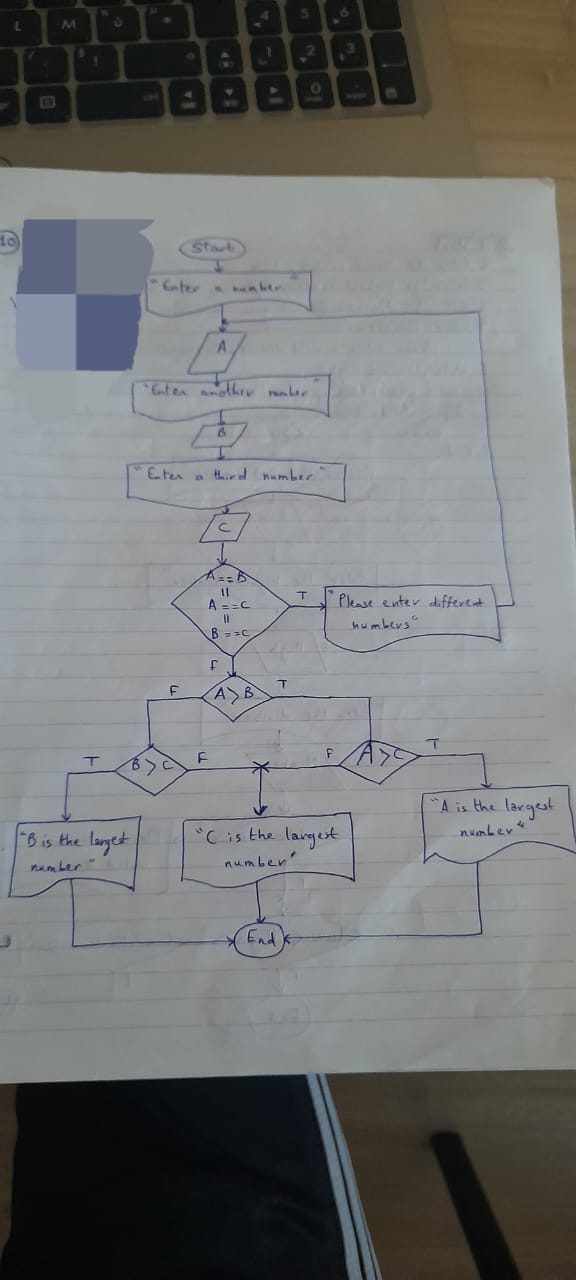 L M Ö
4 5 6
1 2 3
0
10
Start
"Enter a number"
A
"Enter another number"
B
"Enter a third number"
C
A==B
||
A==C
||
B==C
T
"Please enter different
numbers"
F
F A>B T
T B>C F
F A>C T
"B is the largest
number"
"C is the largest
number"
"A is the largest
number"
End